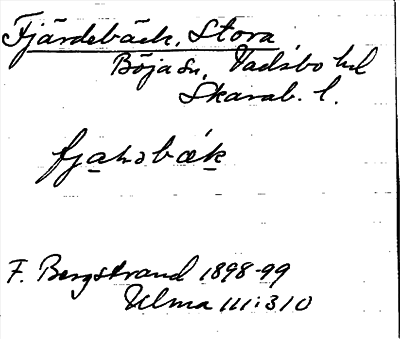 Fjärdebäck, Stora
Böja sn, Vadsbo hd
Skarab. l.
fjahɔbæk
F. Bergstrand 1898-99
Ulma 111:310